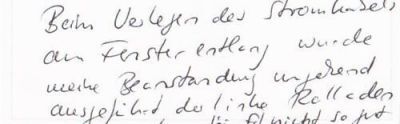 Beim Verlegen des Stromkabels
am Fenster entlang wurde
meine Beanstandung umgehend
ausgeführt der linke Rolladen
nicht so gut